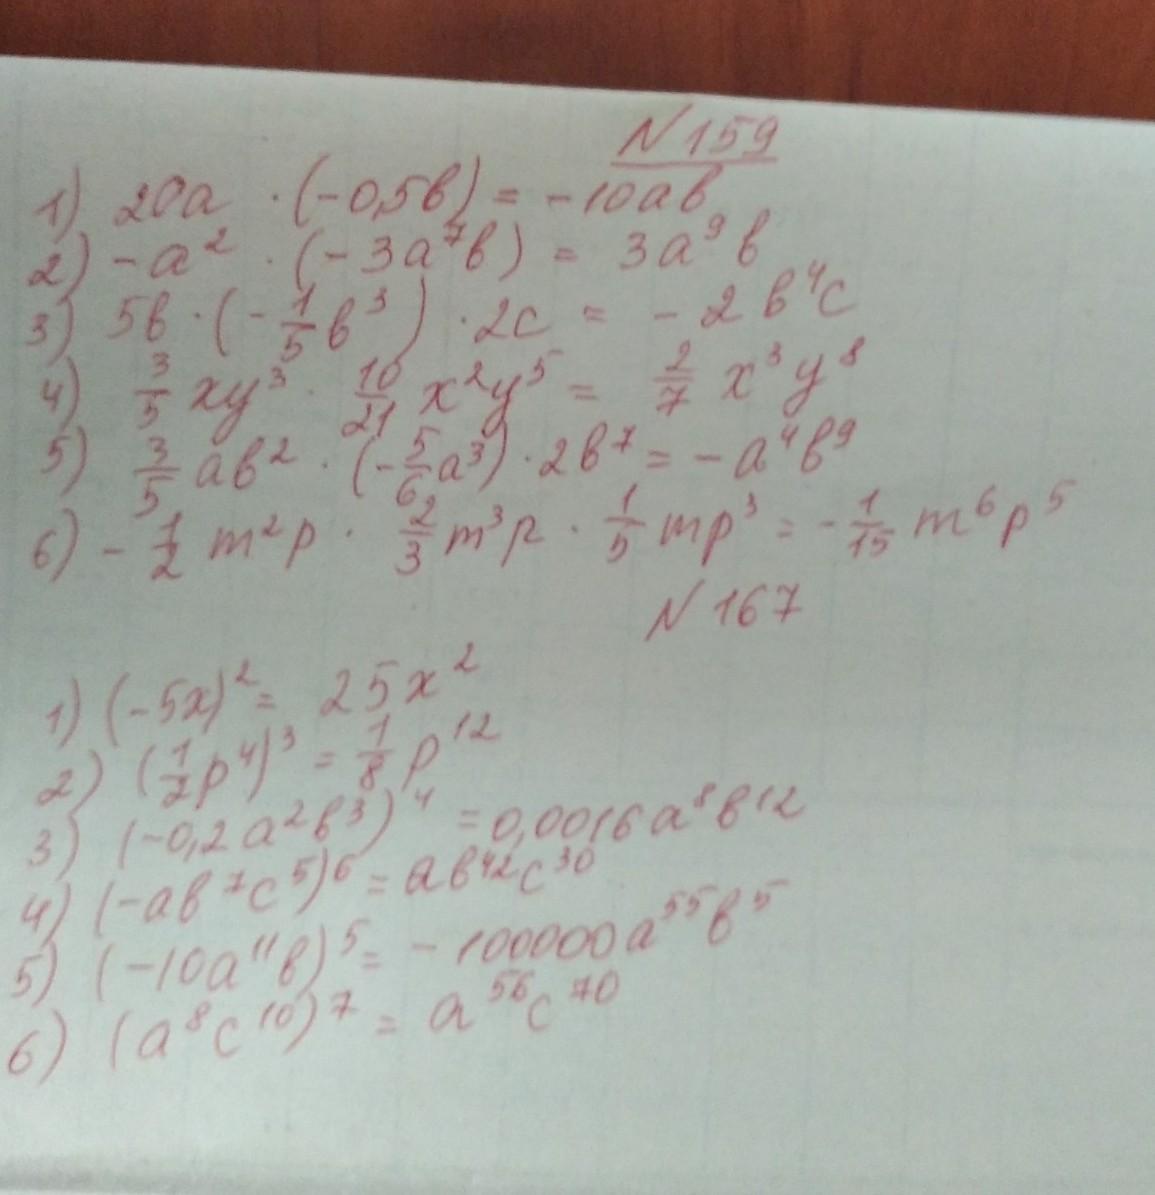 N 159
1) 20a · (-0,5b) = -10ab
2) -a² · (-3a⁷b) = 3a⁹b
3) 5b · (-1/5 b³) · 2c = -2b⁴c
4) 3/5 xy³ · 10/21 x²y⁵ = 2/7 x³y⁸
5) 3/5 ab² · (-5/6 a³) · 2b⁷ = -a⁴b⁹
6) -1/2 m²p · 2/3 m³p · 1/5 mp³ = -1/15 m⁶p⁵
N 167
1) (-5x)² = 25x²
2) (1/2 p⁴)³ = 1/8 p¹²
3) (-0,2a²b³)⁴ = 0,0016a⁸b¹²
4) (-ab⁷c⁵)⁶ = ab⁴²c³⁰
5) (-10a¹¹b)⁵ = -100000a⁵⁵b⁵
6) (a⁸c¹⁰)⁷ = a⁵⁶c⁷⁰